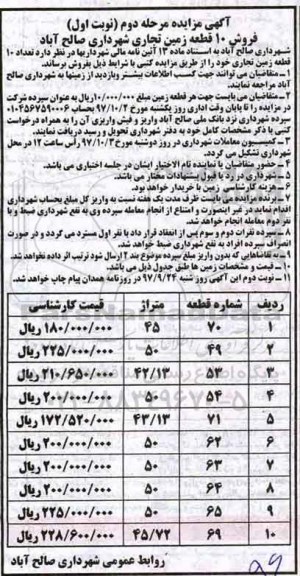 آگهی مزایده مرحله دوم (نوبت اول)
فروش ۱۰ قطعه زمین تجاری شهرداری صالح آباد
شهرداری صالح آباد به استناد ماده ۱۳ آئین نامه مالی شهرداریها در نظر دارد تعداد ۱۰
قطعه زمین تجاری خود را از طریق مزایده کتبی با شرایط ذیل بفروش برساند.
۱ – متقاضیان می توانند جهت کسب اطلاعات بیشتر وبازدید از زمینها به شهرداری صالح
آباد مراجعه نمایند.
۲ – متقاضیان می بایست جهت هر قطعه زمین مبلغ ۱۰/۰۰۰/۰۰۰ریال به عنوان سپرده شرکت
در مزایده را تا پایان وقت اداری روز یکشنبه مورخ ۹۷/۱۰/۲ بحساب ۰۱۰۴۵۶۷۵۹۰۰۰۶
سپرده شهرداری نزد بانک ملی صالح آباد واریز و فیش واریزی آن را به همراه درخواست
کتبی با ذکر مشخصات کامل خود به دفتر شهرداری تحویل و رسید دریافت نمایند.
۳ – کمیسیون معاملات شهرداری در روز دوشنبه مورخ ۹۷/۱۰/۳ رأس ساعت ۱۲ در محل
شهرداری تشکیل می گردد.
۴ – حضور متقاضیان یا نماینده تام الاختیار ایشان در جلسه اختیاری می باشد.
۵ – شهرداری در رد یا قبول پیشنهادات مختار می باشد.
۶ – هزینه کارشناسی زمین با خریدار خواهد بود.
۷ – برنده مزایده می بایست ظرف مدت یک هفته نسبت به واریز کل مبلغ بحساب شهرداری
اقدام نماید در غیر اینصورت و امتناع از انجام معامله سپرده وی به نفع شهرداری ضبط و با
نفر دوم معامله انجام خواهد شد.
۸ – سپرده نفرات دوم و سوم پس از انعقاد قرار داد با نفر اول مسترد می گردد و در صورت
انصراف سپرده افراد به نفع شهرداری ضبط خواهد شد.
۹ – به تقاضاهایی که بدون واریز مبلغ سپرده موضوع بند ۲ ارسال شود ترتیب اثر داده نخواهد شد.
۱۰ – قیمت و مشخصات زمین ها طبق جدول ذیل می باشد.
۱۱ – نوبت دوم این آگهی روز شنبه ۹۷/۹/۲۴ در روزنامه همدان پیام چاپ خواهد شد.
ردیف شماره قطعه متراژ قیمت کارشناسی
۱ ۷۰ ۴۵ ۱۸۰/۰۰۰/۰۰۰ ریال
۲ ۴۹ ۵۰ ۲۲۵/۰۰۰/۰۰۰ ریال
۳ ۵۳ ۴۲/۱۳ ۲۱۰/۶۵۰/۰۰۰ ریال
۴ ۵۴ ۵۰ ۲۰۰/۰۰۰/۰۰۰ ریال
۵ ۷۱ ۴۳/۱۳ ۱۷۲/۵۲۰/۰۰۰ ریال
۶ ۶۲ ۵۰ ۲۰۰/۰۰۰/۰۰۰ ریال
۷ ۶۳ ۵۰ ۲۰۰/۰۰۰/۰۰۰ ریال
۸ ۶۴ ۵۰ ۲۰۰/۰۰۰/۰۰۰ ریال
۹ ۶۵ ۵۰ ۲۲۵/۰۰۰/۰۰۰ ریال
۱۰ ۶۹ ۴۵/۷۲ ۲۲۸/۶۰۰/۰۰۰ ریال
روابط عمومی شهرداری صالح آباد